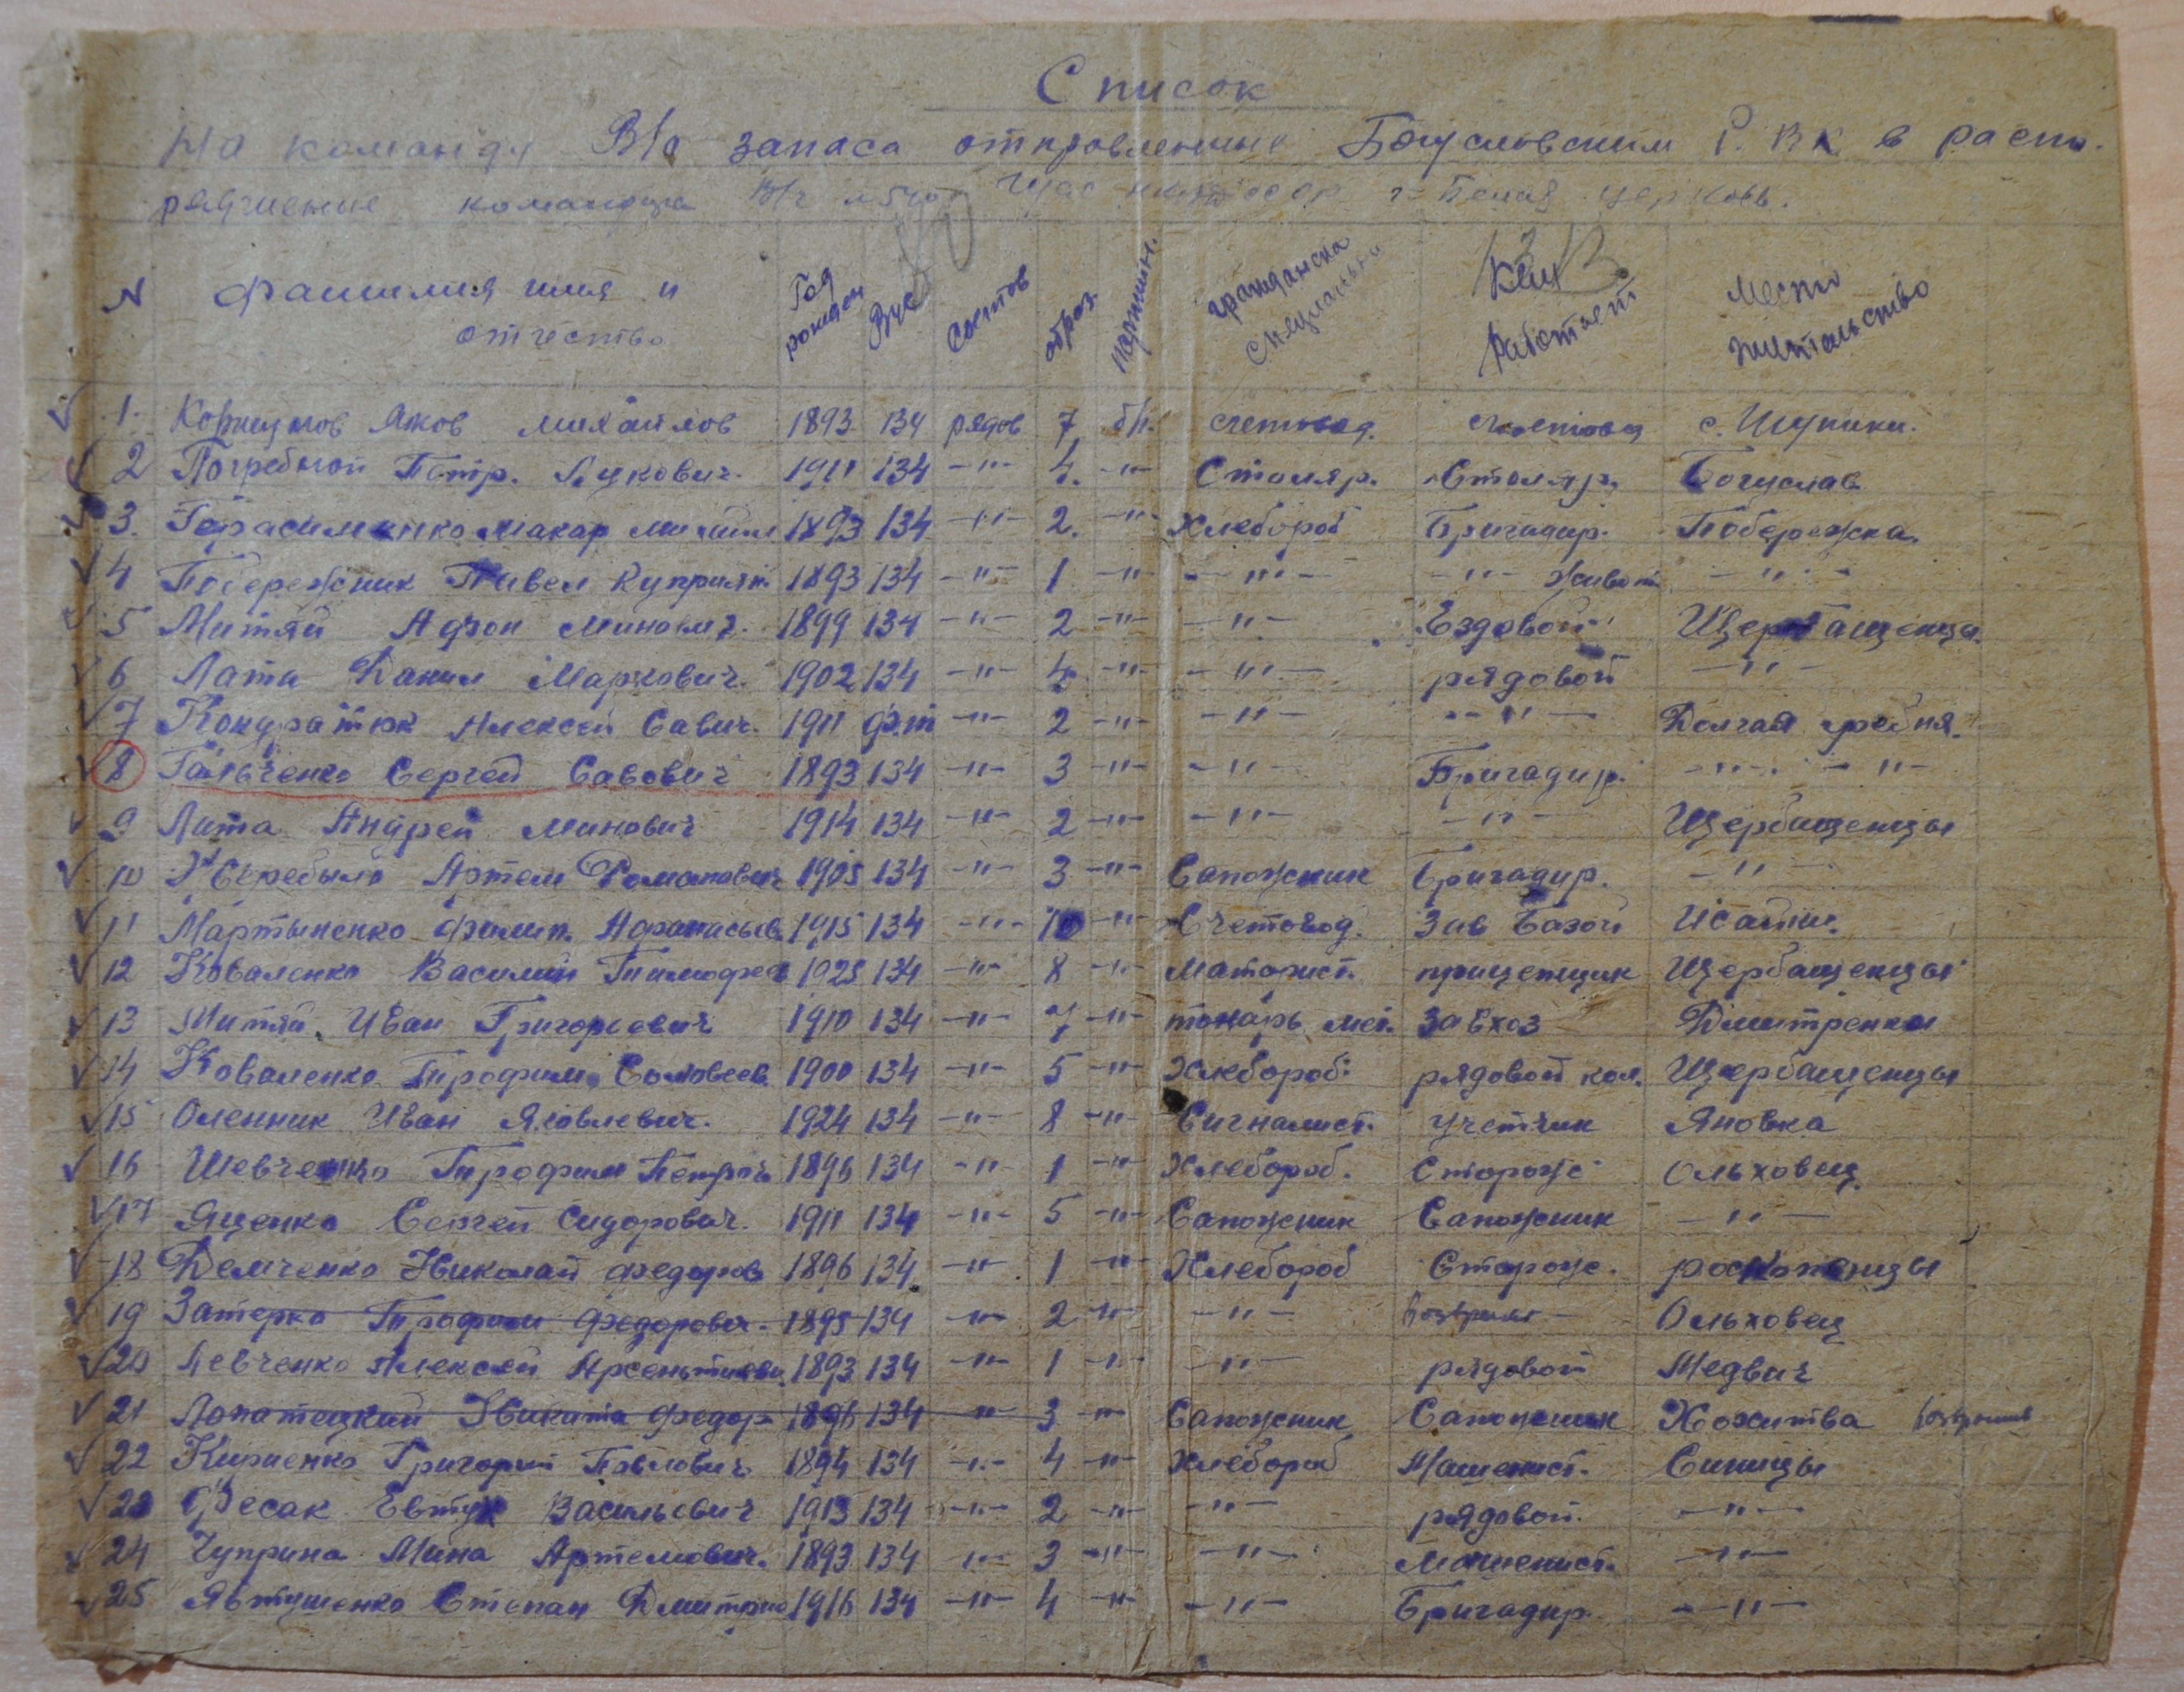 Список
На команду В/о запаса отправленные Богуславским Р.ВК в распо.
ряжение командира В/ч г. Белая церковь.
N фамилия имя и отчество Год рожден Вус Состав образ. партийн. гражданска специальн Кем работает Место жительство
1. Яков Михайлов 1893 134 рядов 7 б/п. счетовод. счетовод с. Шупики.
2 Погребной Петр. Лукович. 1911 134 -"- 4. -"- Столяр. Столяр. Богуслав
3. Герасименко Макар 1893 134 -"- 2. -"- Хлебороб Бригадир. Побережка.
4 Побережник Павел Куприян 1893 134 -"- 1 -"- -"- -"- живот -"-
5 Митяй Афон Минович. 1899 134 -"- 2 -"- -"- Ездовой Щербашенцы.
6 Лата Данил Маркович. 1902 134 -"- 4 -"- -"- рядовой -"-
7 Кондратюк Алексей Савич. 1911 ф.т -"- 2 -"- -"- -"- Долгая гребня.
8 Гальченко Сергей Савович 1893 134 -"- 3 -"- -"- Бригадир. -"- -"-
9 Лата Андрей Минович 1914 134 -"- 2 -"- -"- -"- Щербашенцы
10 Артем Романович 1905 134 -"- 3 -"- Сапожник Бригадир. -"-
11 Мартыненко Филип. Афанасьев 1915 134 -"- 10 -"- Счетовод. Зав базой Исайки.
12 Коваленко Василий Тимофее 1925 134 -"- 8 -"- Маторист. прицепщик Щербашенцы
13 Митяй Иван Григорьевич 1910 134 -"- 7 -"- токарь мет. Завхоз Дмитренки
14 Коваленко Трофим Соловеев 1900 134 -"- 5 -"- Хлебороб. рядовой кол. Щербашенцы
15 Оленник Иван Яковлевич. 1924 134 -"- 8 -"- Сигналист. Учетчик Яновка
16 Шевченко Трофим Петров 1896 134 -"- 1 -"- Хлебороб. Сторож Ольховец.
17 Яценко Сергей Сидорович. 1911 134 -"- 5 -"- Сапожник Сапожник -"-
18 Демченко Николай федоров 1896 134 -"- 1 -"- Хлебороб Сторож. роскопенцы
19 Затерко Трофим Федорович. 1895 134 -"- 2 -"- -"- Ольховец
20 Левченко Алексей 1893 134 -"- 1 -"- -"- рядовой Медвич
21 Лопатецкий Никита Федор 1896 134 -"- 3 -"- Сапожник Сапожник Хохитва
22 Кириенко Григорий Павлович 1894 134 -"- 4 -"- Хлебороб Машенист. Синицы
23 Фесак Евтух Васильевич 1913 134 -"- 2 -"- -"- рядовой. -"-
24 Чуприна Мина Артемович. 1893 134 -"- 3 -"- -"- Машенист. -"-
25 Явтушенко Степан Дмитрие 1916 134 -"- 4 -"- -"- Бригадир. -"-